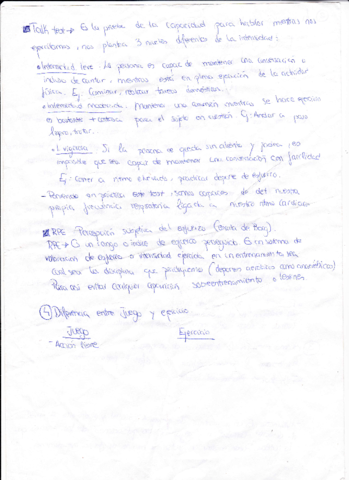 Talk test → Es la prueba de la capacidad para hablar mientras nos
ejercitamos, nos plantea 3 niveles diferentes de la intensidad:
• Intensidad leve: La persona es capaz de mantener una conversación o
incluso de cantar, mientras está en plena ejecución de la actividad
física. Ej: Caminar, realizar tareas domésticas.
• Intensidad moderada: Mantener una conversación mientras se hace ejercicio
es bastante costosa para el sujeto en cuestión. Ej: Andar a paso
ligero,
• Vigorosa: Si la persona se queda sin aliento y jadea, no
importante que sea capaz de mantener una conversación con facilidad
Ej: Correr a ritmo elevado, practicar deporte de esfuerzo.
- Poniendo en práctica este test, somos capaces de det nuestra
propia frecuencia respiratoria ligada a nuestro ritmo cardíaco
RPE Percepción subjetiva del esfuerzo (escala de Borg).
RPE → Es un rango o índice de esfuerzo percibido. Es un sistema de
valoración de esfuerzo o intensidad ejercida en un entrenamiento sea
cual sea la disciplina que practiquemos (deportes aeróbicos como anaeróbicos)
Para así evitar cualquier sobreentrenamiento o lesión.
④ Diferencia entre juego y ejercicio.
Juego Ejercicio
- Acción libre